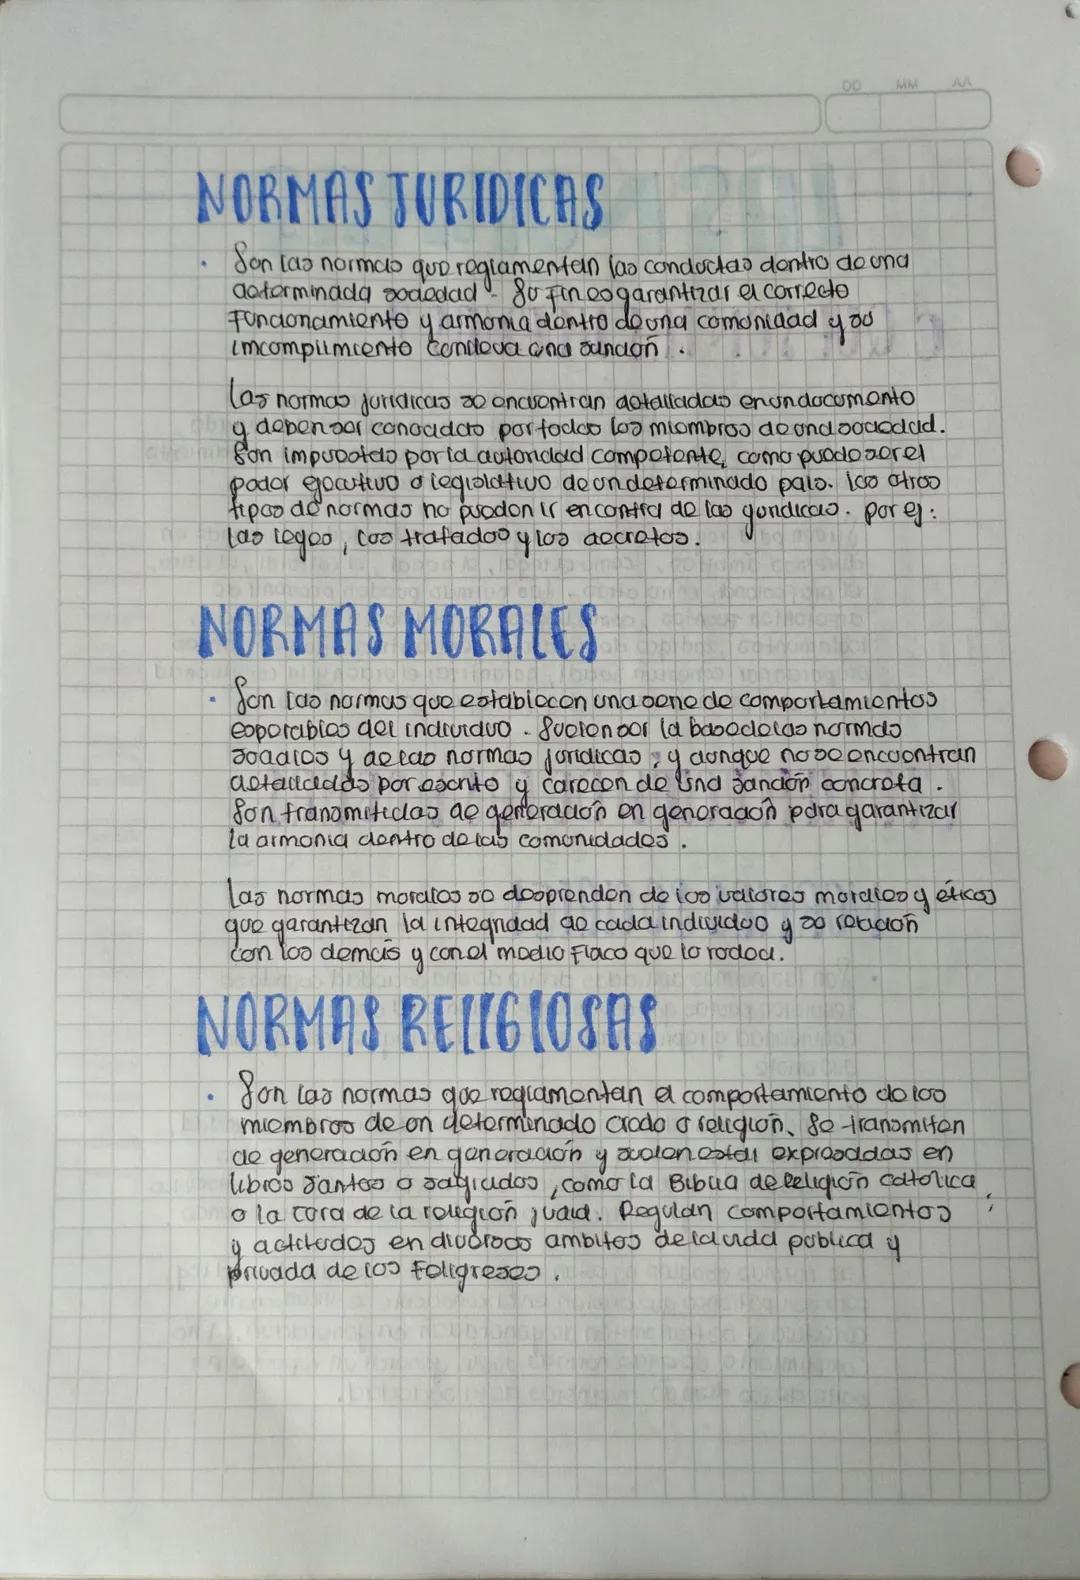 DD MM AA
NORMAS JURIDICAS
· Son las normas que reglamentan las conductas dentro de una
determinada sociedad. Su fin es garantizar el correcto
Funcionamiento y armonia dentro de una comunidad y su
imcomplimiento conlleva una sanción.
las normas juridicas se encuentran detalladas en un documento
y deben ser conocidato por todos los miembros de una sociedad.
Son impuestas por la autoridad competente, como puede ser el
poder ejecutivo o legislativo de un determinado país. los otros
tipos de normas no pueden ir en contra de las juridicas. por ej:
las leyes, los tratados y los decretos.
NORMAS MORALES
· Son las normas que establecen una serie de comportamientos
esperables del individuo. Suelen ser la base de las normas
sociales y de las normas juridicas; y aunque no se encuentran
detalladas por escrito y carecen de una sanción concreta.
Son transmitidas de generación en generación para garantizar
la armonia dentro de las comunidades.
las normas morales se desprenden de los valores morales y éticos
que garantizan la integridad de cada individuo y su relación
con los demás y con el medio Fisico que lo rodea.
NORMAS RELIGIOSAS
· Son las normas que reglamentan el comportamiento de los
miembros de un determinado credo o religión. Se transmiten
de generación en generación y suelen estar expresadas en
libros santos o sagrados, como la Biblia de Religión catolica,
o la tora de la religión judia. Regulan comportamientos
y actitudes en diversos ambitos de la vida publica y
privada de los Feligreses.